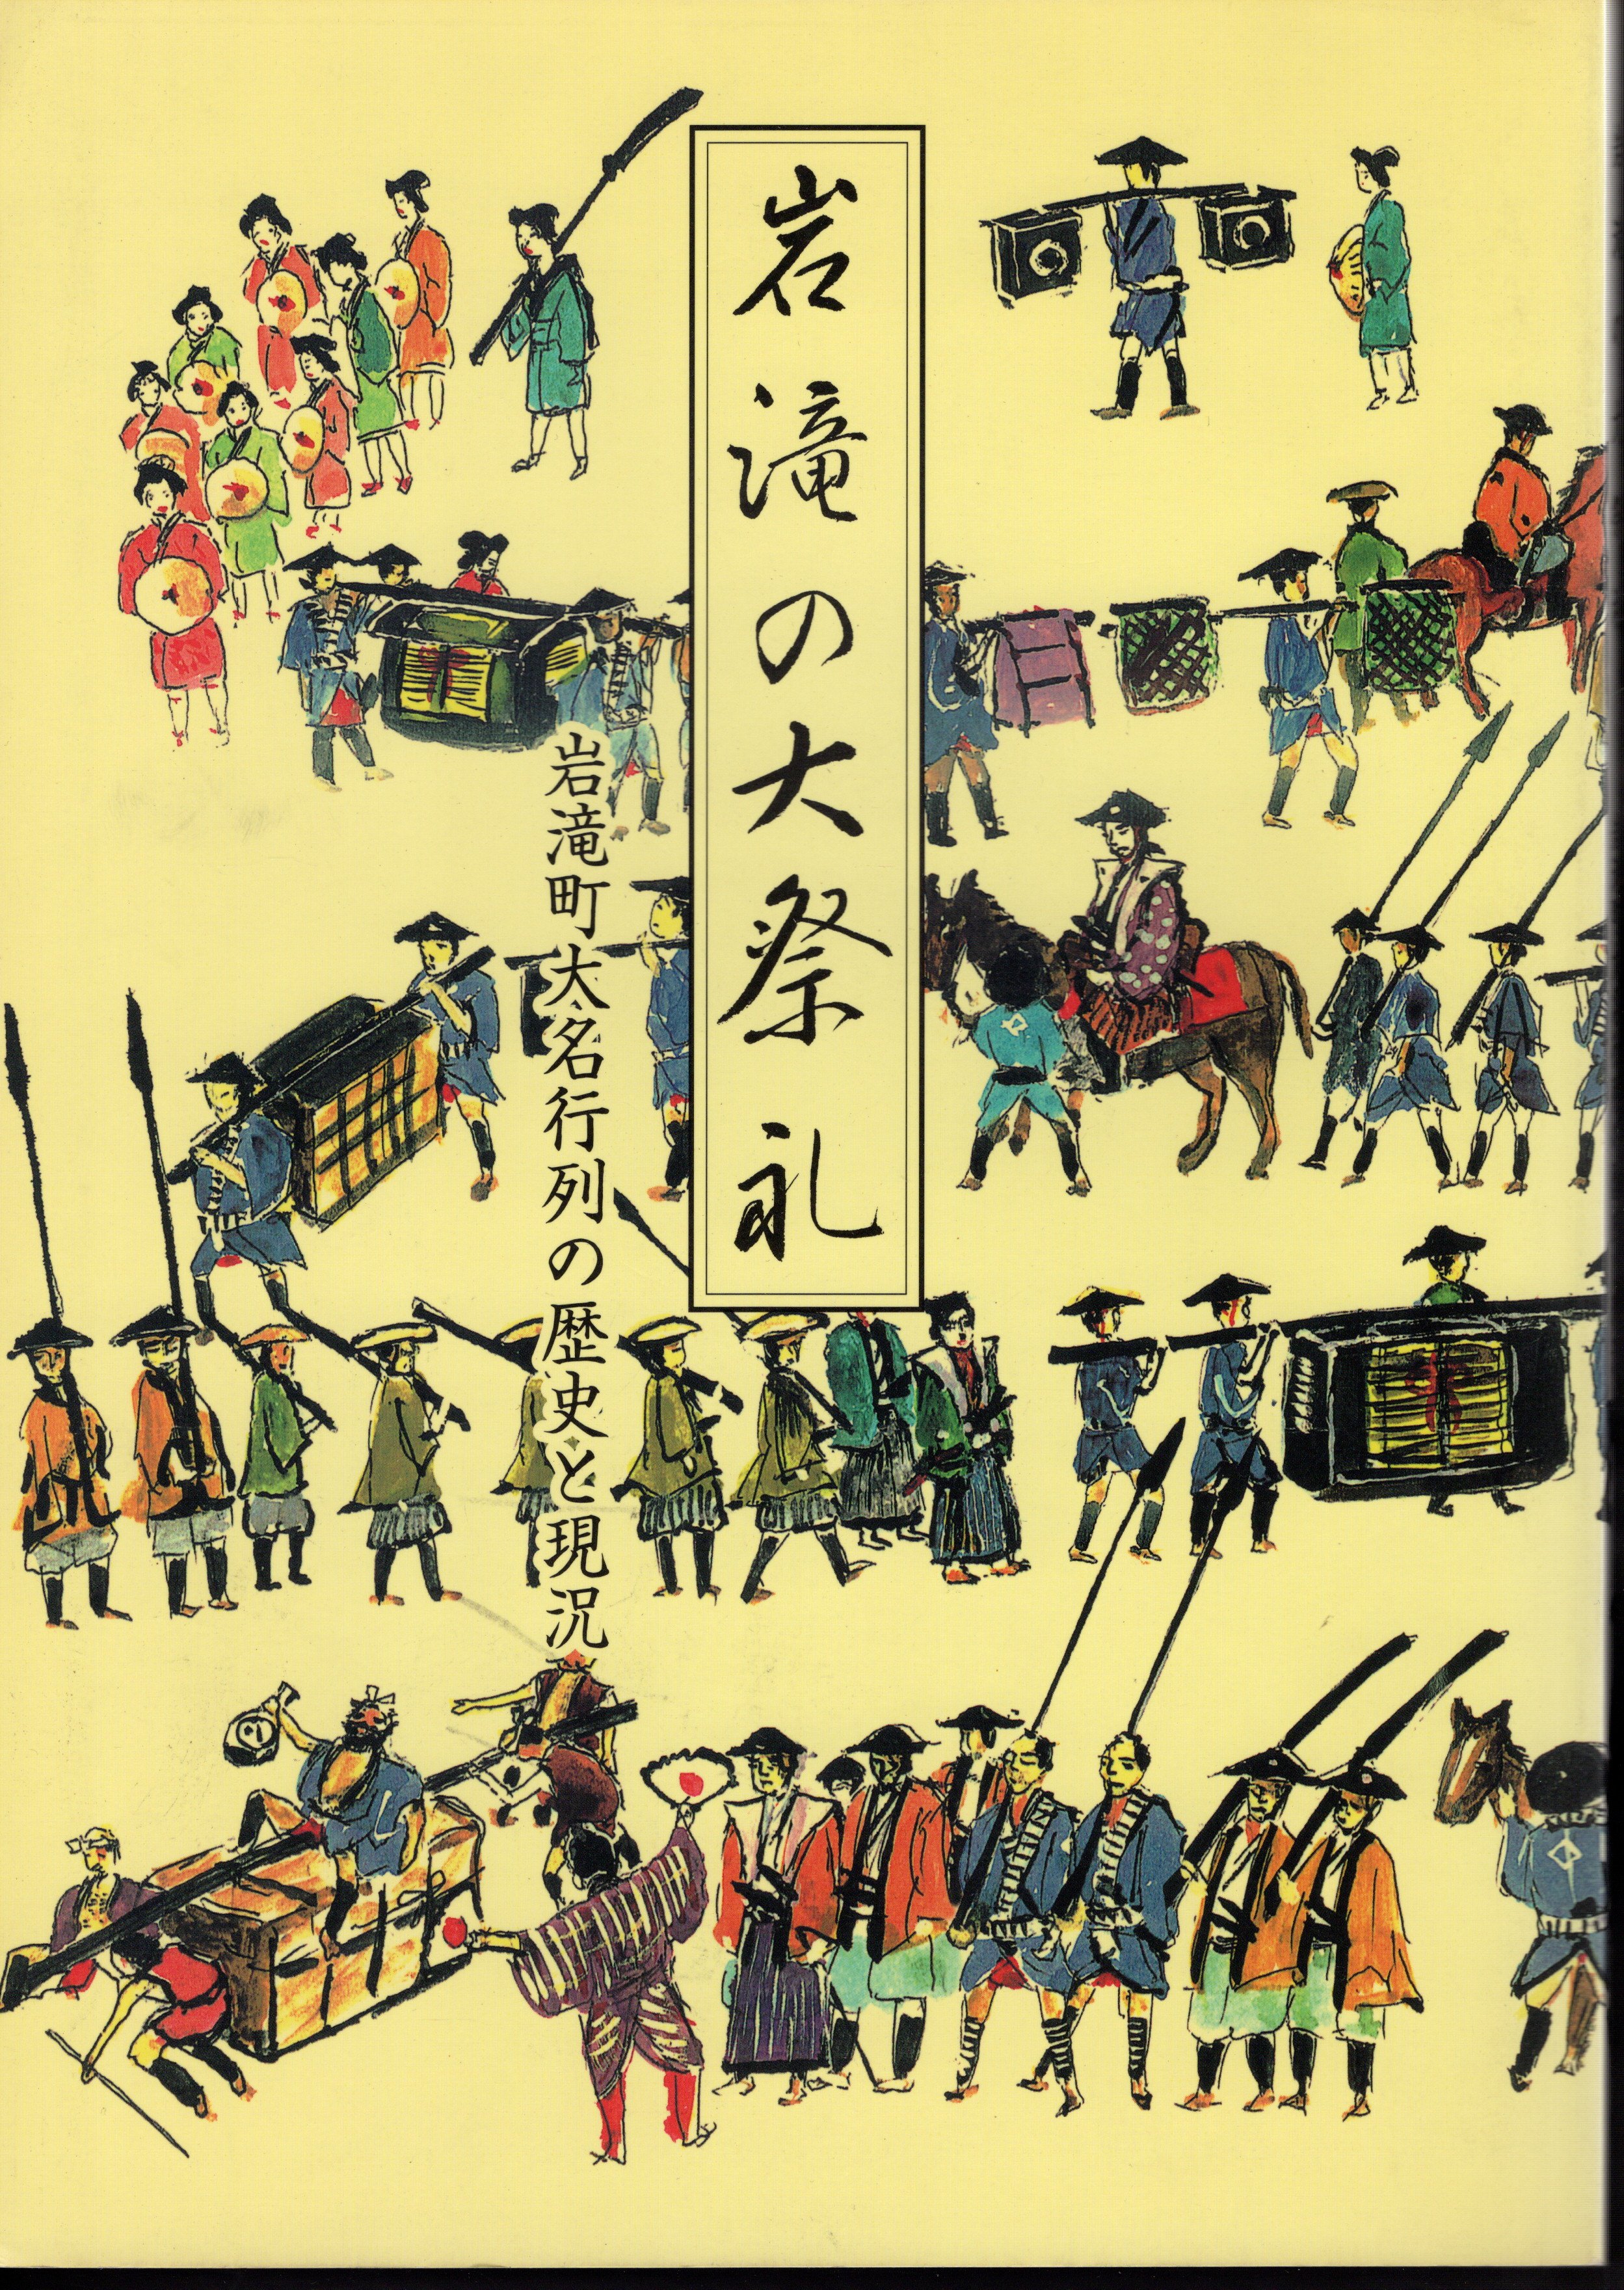 岩滝の大祭礼
岩滝町大名行列の歴史と現況